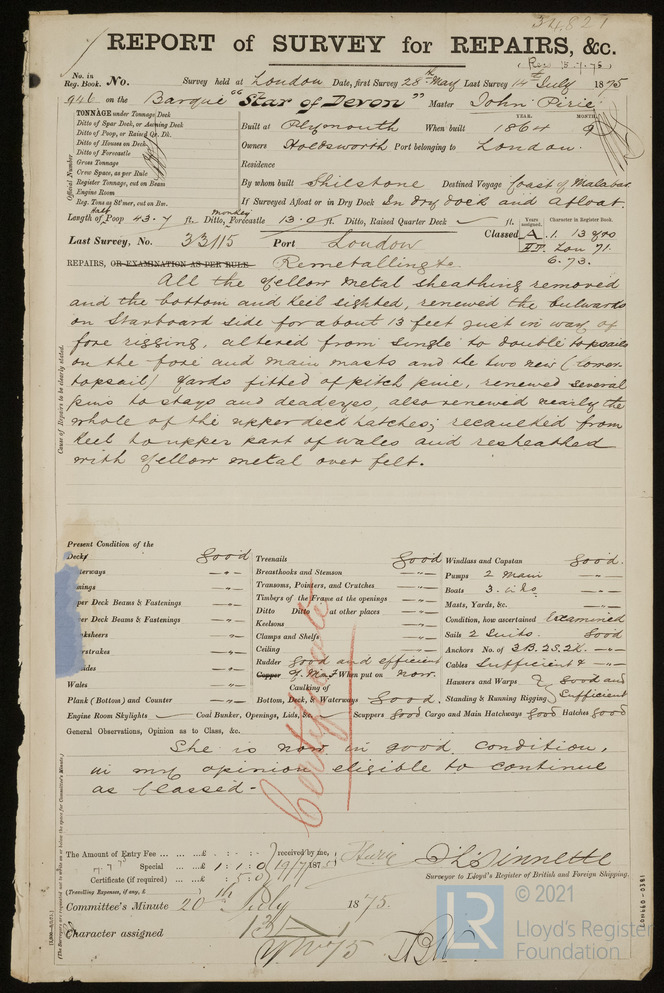 34,821
REPORT of SURVEY for REPAIRS, &c.
(Rec 15.7.75)
No. in Reg. Book. No. Survey held at London Date, first Survey 28th May Last Survey 14th July 1875
946 on the Barque "Star of Devon" Master John Pirie
TONNAGE under Tonnage Deck
Ditto of Spar Deck, or Awning Deck
Ditto of Poop, or Raised Qr. Dk.
Ditto of Houses on Deck
Ditto of Forecastle
Gross Tonnage
Crew Space, as per Rule
Register Tonnage, cut on Beam
Engine Room
Reg. Tons as St'mer, cut on Bm.
Official Number
YEAR. MONTH.
Built at Plymouth When built 1864 9
Owners Holdsworth Port belonging to London.
Residence
By whom built Shilstone Destined Voyage Coast of Malabar
If Surveyed Afloat or in Dry Dock In dry dock and afloat.
Length of Half Poop 43.7 ft. Ditto, Monkey Forecastle 13.0 ft. Ditto, Raised Quarter Deck ft.
Years assigned. Character in Register Book.
Classed A.1. 13 yrs
Lon 71
6.73.
Last Survey, No. 33115 Port London
REPAIRS, OR EXAMINATION AS PER RULE Remetalling &c.
Cause of Repairs to be clearly stated.
All the Yellow Metal sheathing removed
and the bottom and keel sighted, renewed the bulwarks
on Starboard side for about 13 feet just in way of
fore rigging, altered from single to double topsails
on the fore and main masts and the two new (lower-
topsail) yards fitted of pitch pine, renewed several
pins to stays and deadeyes, also renewed nearly the
whole of the upper deck hatches; recaulked from
keel to upper part of wales and resheathed
with Yellow metal over felt.
Present Condition of the
Decks Good
Upper Deck Beams & Fastenings -"-
Wales -"-
Plank (Bottom) and Counter -"-
Engine Room Skylights
Treenails Good
Breasthooks and Stemson -"-
Transoms, Pointers, and Crutches -"-
Timbers of the Frame at the openings -"-
Ditto Ditto at other places -"-
Keelsons -"-
Clamps and Shelfs -"-
Ceiling -"-
Rudder Good and efficient
Copper Y. Mal When put on now.
Caulking of
Bottom, Deck, & Waterways Good.
Coal Bunker, Openings, Lids, &c.
Windlass and Capstan Good.
Pumps 2 Main -"-
Boats 3. -"-
Masts, Yards, &c. -"-
Condition, how ascertained Examined
Sails 2 Suits. Good
Anchors No. of 3B. 2S. 2K. -"-
Cables Sufficient & -"-
Hawsers and Warps Good and
Standing & Running Rigging Sufficient
Scuppers Good Cargo and Main Hatchways Good Hatches Good
Certificate
General Observations, Opinion as to Class, &c.
She is now in good condition,
in my opinion eligible to continue
as Classed-
The Amount of Entry Fee ... ... ...£ : : received by me,
Special ... ...£ 1 : 1 : 0 19/7/1875
Certificate (if required) ...£ : 5 : 0
(Travelling Expenses, if any, £ )
Surveyor to Lloyd's Register of British and Foreign Shipping.
Committee's Minute 20 July 1875.
Character assigned
© 2021
LR
Lloyd's Register
Foundation